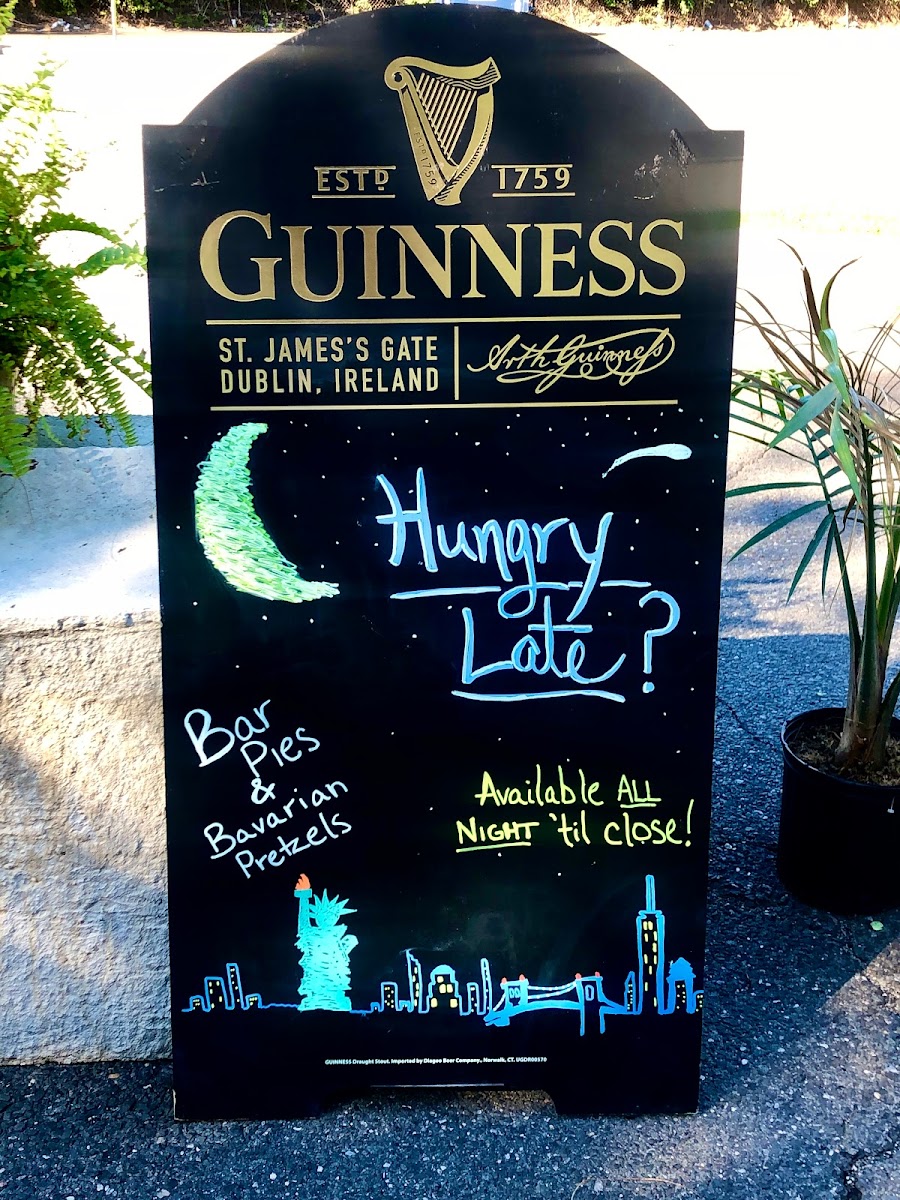 ESTD 1759
GUINNESS
ST. JAMES'S GATE
DUBLIN, IRELAND
Arth Guinness
Hungry
Late?
Bar
Pies
&
Bavarian
Pretzels
Available ALL
NIGHT 'til close!
GUINNESS Draught Stout. Imported by Diageo Beer Company., Norwalk, CT. UGDR08570